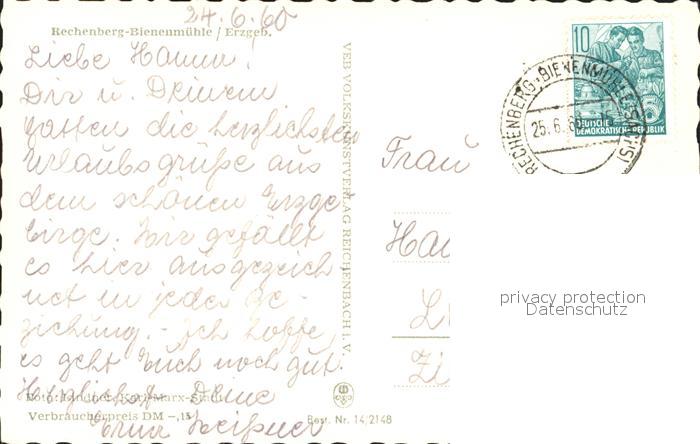 24.6.60
Rechenberg-Bienenmühle / Erzgeb.
Liebe Hanni!
Dir u. Deinem
Gatten die herzlichsten
Urlaubsgrüße aus
dem schönen Erzge-
birge. Mir gefällt
es hier ausgezeich
net in jeder Be-
ziehung. - Ich hoffe,
es geht Euch noch gut.
Herzlichst Deine
Erna
Foto: Lindner, Karl-Marx-Stadt
Verbraucherpreis DM -,15
Best. Nr. 14/2148
VEB VOLKSKUNSTVERLAG REICHENBACH I. V.
10
DEUTSCHE
DEMOKRATISCHE REPUBLIK
RECHENBERG-BIENENMÜHLE
25.6.
Frau
privacy protection
Datenschutz